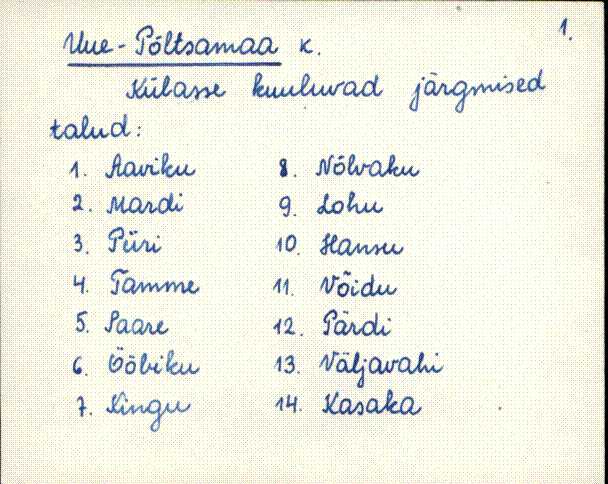 1.
Uue-Põltsamaa k.
Külasse kuuluvad järgmised
talud:
1. Aaviku
2. Mardi
3. Piiri
4. Tamme
5. Saare
6. Ööbiku
7. Kingu
8. Nõlvaku
9. Lohu
10. Hansu
11. Võidu
12. Pärdi
13. Väljavahi
14. Kasaka